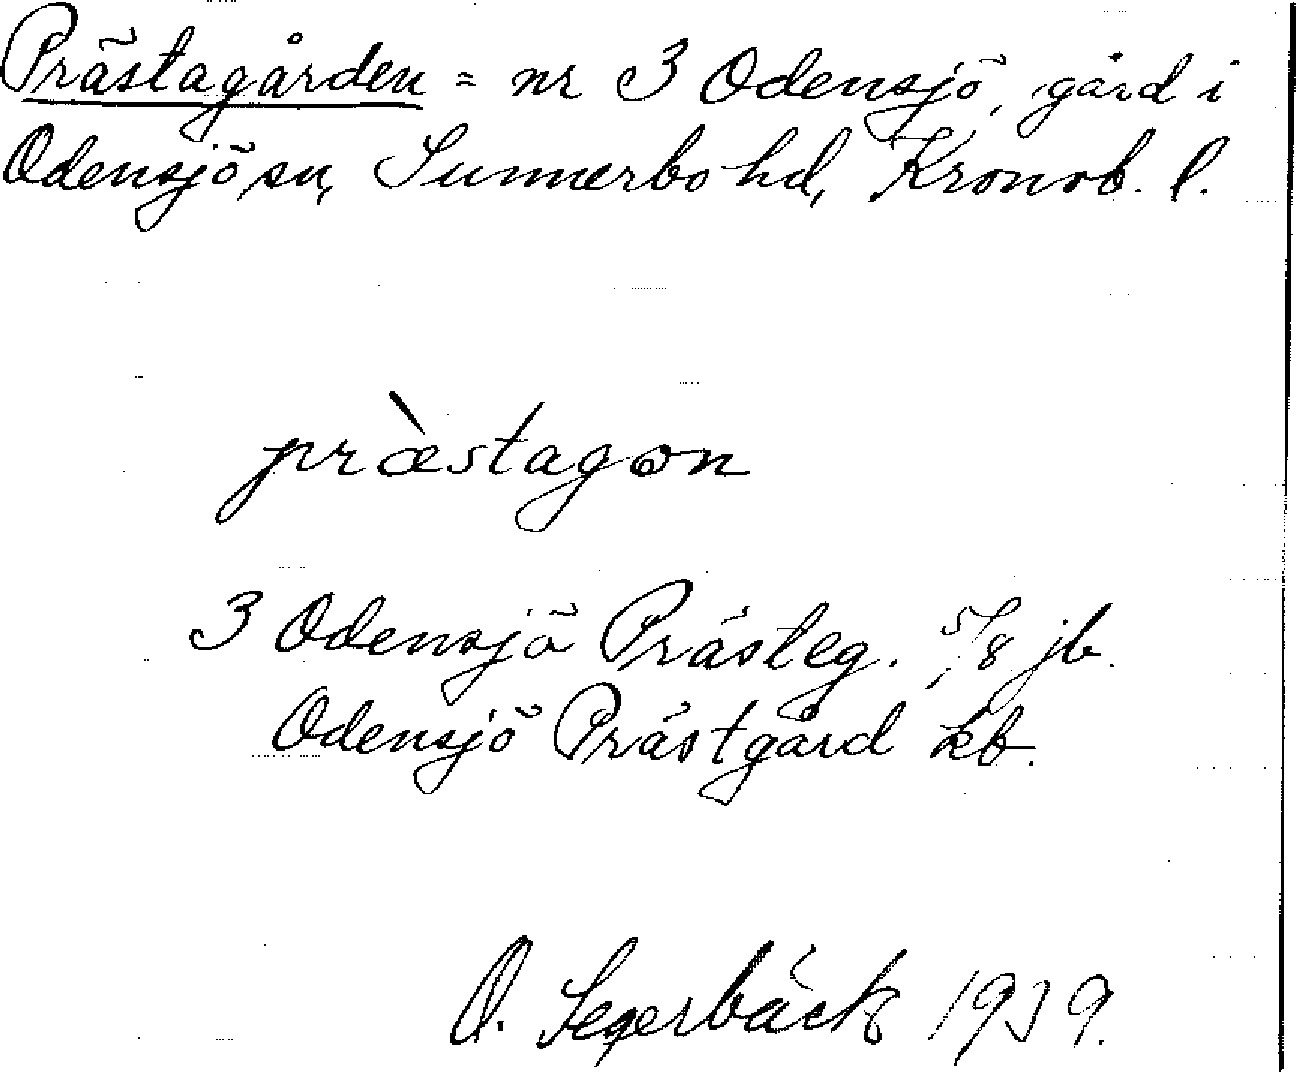 Prästagården = nr 3 Odensjö, gård i
Odensjö sn, Sunnerbo hd, Kronob. l.
præ̀stagɷn
3 Odensjö Präste­g. 5/8 jb.
Odensjö Prästgård kb.
O. Segerbäck 1939.